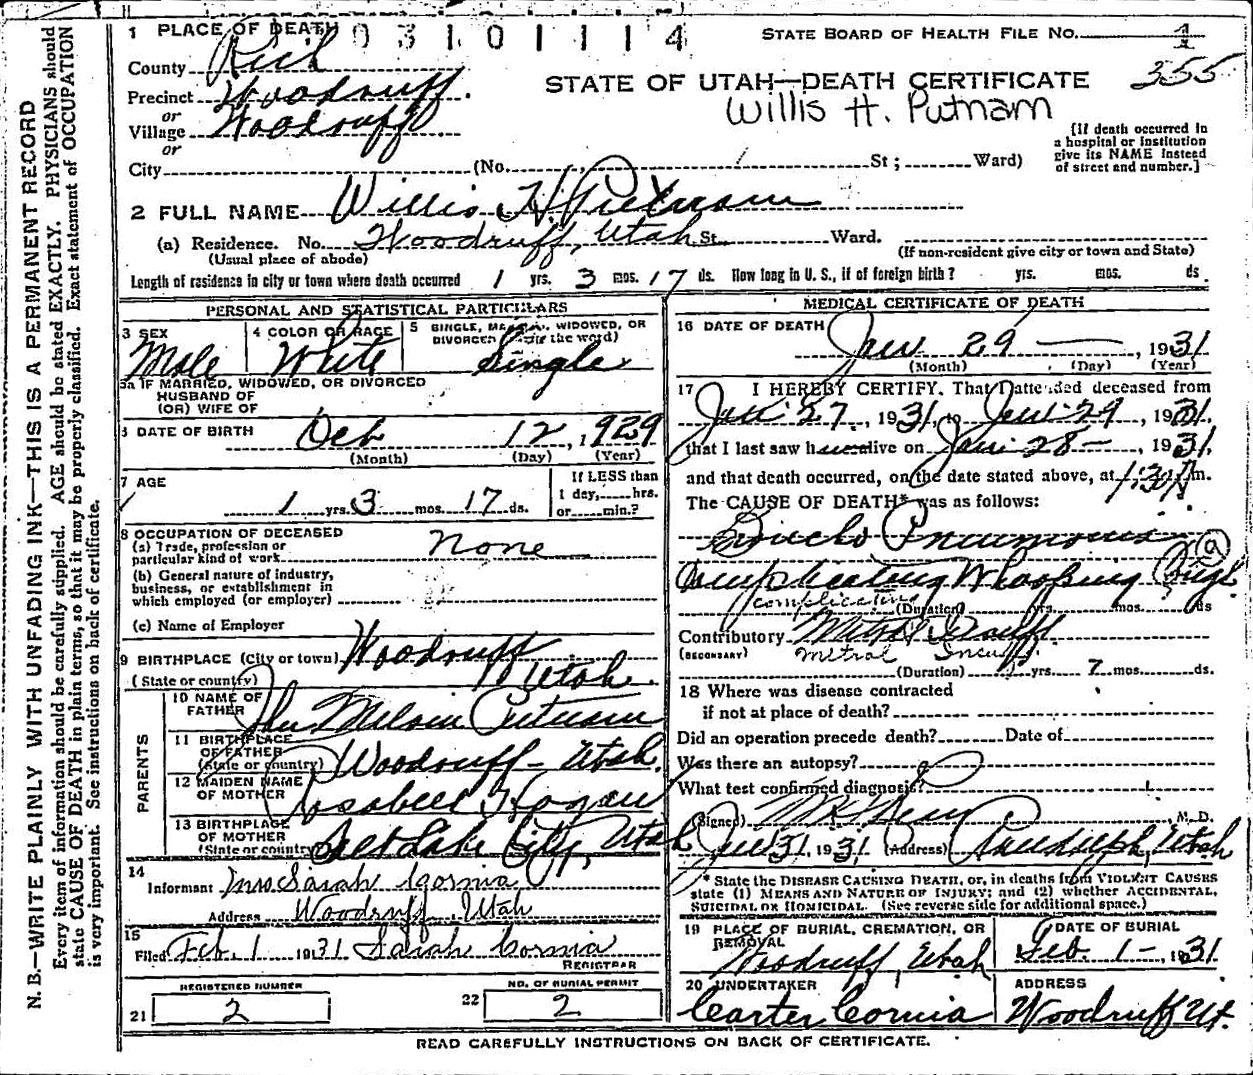 1 PLACE OF DEATH
03101114
STATE BOARD OF HEALTH FILE NO. 4
County Rich
STATE OF UTAH—DEATH CERTIFICATE
355
Precinct Woodruff.
Willis H. Putnam
or
Village Woodruff
or
[If death occurred in a hospital or institution give its NAME instead of street and number.]
City (No. St ; Ward)
2 FULL NAME Willis H. Putnam
(a) Residence. No. Woodruff, Utah St. Ward.
(Usual place of abode)
(If non-resident give city or town and State)
Length of residence in city or town where death occurred 1 yrs. 3 mos. 17 ds. How long in U. S., if of foreign birth? yrs. mos. ds.
PERSONAL AND STATISTICAL PARTICULARS
3 SEX
Male
4 COLOR OR RACE
White
5 SINGLE, WIDOWED, OR DIVORCED (the word)
Single
5a IF MARRIED, WIDOWED, OR DIVORCED
HUSBAND OF
(OR) WIFE OF
DATE OF BIRTH Oct 12, 1929
(Month) (Day) (Year)
7 AGE
1 yrs. 3 mos. 17 ds.
If LESS than
1 day, hrs.
or min.?
8 OCCUPATION OF DECEASED
(a) Trade, profession or
particular kind of work
none
(b) General nature of industry,
business, or establishment in
which employed (or employer)
(c) Name of Employer
9 BIRTHPLACE (City or town) Woodruff
(State or country) Utah.
PARENTS
10 NAME OF FATHER Melvin Putnam
11 BIRTHPLACE OF FATHER (State or country) Woodruff - Utah.
12 MAIDEN NAME OF MOTHER Hogan
13 BIRTHPLACE OF MOTHER (State or country) Salt Lake City, Utah
14
Informant Mrs Sarah Cornia
Address Woodruff, Utah
15
Filed Feb. 1 1931 Sarah Cornia
REGISTRAR
REGISTERED NUMBER
21 2
NO. OF BURIAL PERMIT
22 2
MEDICAL CERTIFICATE OF DEATH
16 DATE OF DEATH
Jan 29, 1931
(Month) (Day) (Year)
17 I HEREBY CERTIFY, That I attended deceased from
Jan 27, 1931, to Jan 29, 1931.
that I last saw h alive on Jan 28, 1931,
and that death occurred, on the date stated above, at 1:30 A m.
The CAUSE OF DEATH* was as follows:
Broncho Pneumonia
a
complicating Whooping Cough
complicating
(Duration) yrs. mos. ds
Contributory Mitral Insuff
(SECONDARY) Mitral Insuff.
(Duration) yrs. 7 mos. ds.
18 Where was disease contracted
if not at place of death?
Did an operation precede death? Date of
Was there an autopsy?
What test confirmed diagnosis?
(Signed) M. D.
Jan 31, 1931 (Address) Randolph, Utah
* State the DISEASE CAUSING DEATH, or, in deaths from VIOLENT CAUSES
state (1) MEANS AND NATURE OF INJURY; and (2) whether ACCIDENTAL,
SUICIDAL OR HOMICIDAL. (See reverse side for additional space.)
19 PLACE OF BURIAL, CREMATION, OR REMOVAL
Woodruff, Utah
DATE OF BURIAL
Feb. 1 - 1931
20 UNDERTAKER
Carter Cornia
ADDRESS
Woodruff Ut.
READ CAREFULLY INSTRUCTIONS ON BACK OF CERTIFICATE.
N. B.—WRITE PLAINLY WITH UNFADING INK—THIS IS A PERMANENT RECORD
Every item of information should be carefully supplied. AGE should be stated EXACTLY. PHYSICIANS should
state CAUSE OF DEATH in plain terms, so that it may be properly classified. Exact statement of OCCUPATION
is very important. See instructions on back of certificate.